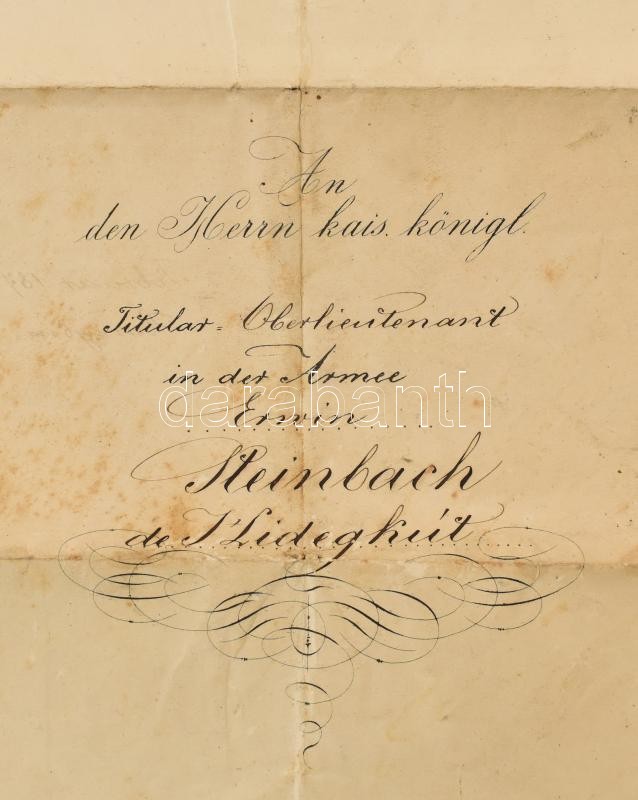 An
den Herrn kais. königl.
Titular-Oberlieutenant
in der Armee
darabanth
Erwin
Steinbach
de Hidegkút